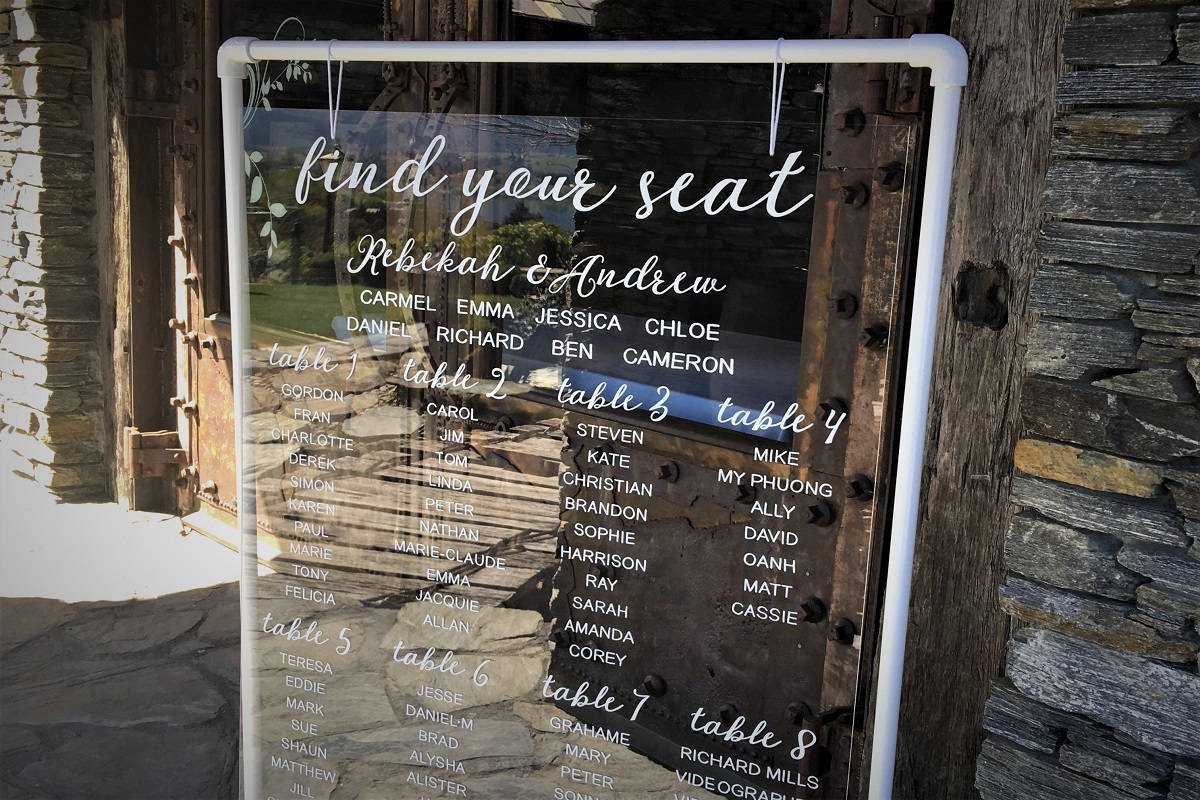 find your seat
Rebekah & Andrew
CARMEL EMMA JESSICA CHLOE
DANIEL RICHARD BEN CAMERON
table 1
GORDON
FRAN
CHARLOTTE
DEREK
SIMON
KAREN
PAUL
MARIE
TONY
FELICIA
table 2
CAROL
JIM
TOM
LINDA
PETER
NATHAN
MARIE-CLAUDE
EMMA
JACQUIE
ALLAN
table 3
STEVEN
KATE
CHRISTIAN
BRANDON
SOPHIE
HARRISON
RAY
SARAH
AMANDA
COREY
table 4
MIKE
MY PHUONG
ALLY
DAVID
OANH
MATT
CASSIE
table 5
TERESA
EDDIE
MARK
SUE
SHAUN
MATTHEW
JILL
table 6
JESSE
DANIEL-M
BRAD
ALYSHA
ALISTER
table 7
GRAHAME
MARY
PETER
table 8
RICHARD MILLS